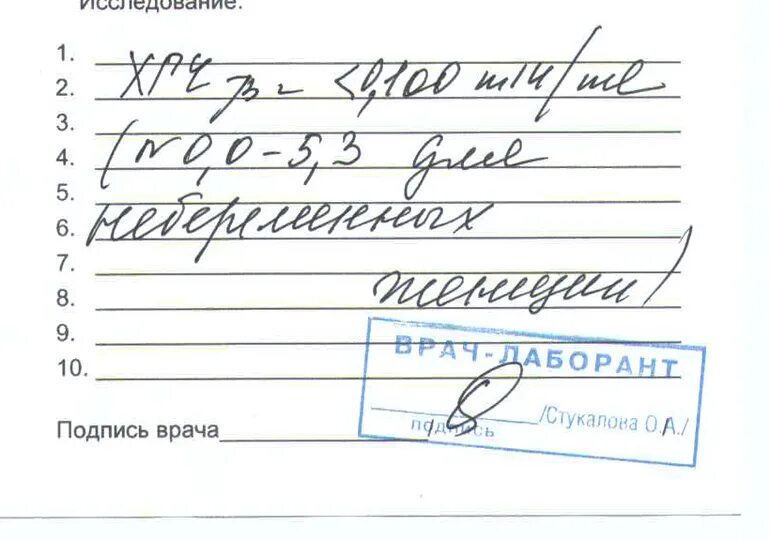 Исследование:
1.
2. ХГЧ β = <0,100 mIU/ml
3.
4. (N 0,0-5,3 для
5.
6. небеременных
7.
8. женщин)
9.
10.
ВРАЧ-ЛАБОРАНТ
/Стукалова О.А./
подпись
Подпись врача